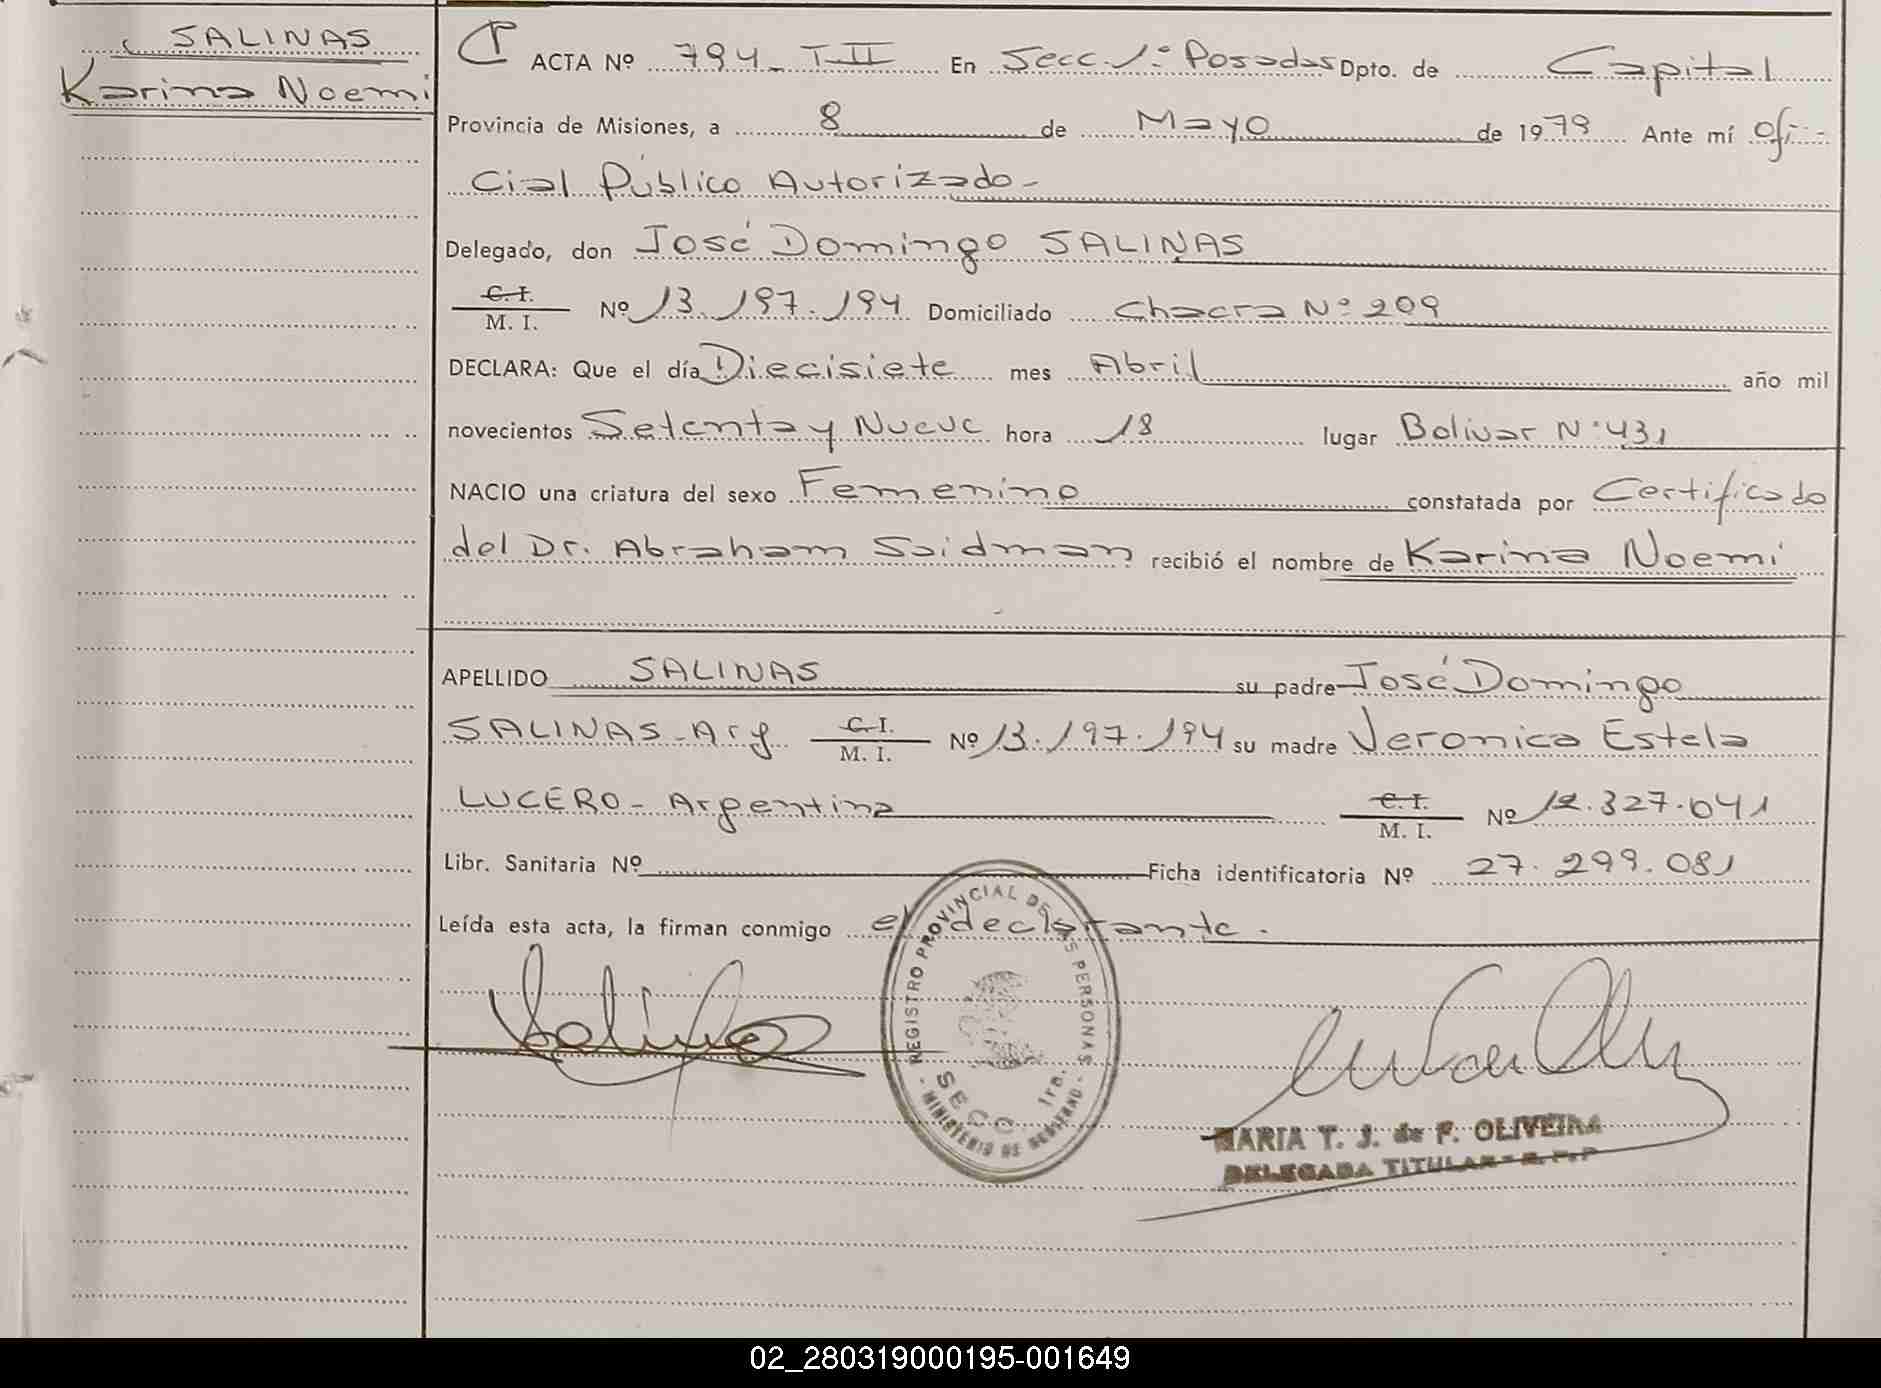 SALINAS
Karina Noemi
ACTA Nº 794 - T-II En Secc. 1º Posadas Dpto. de Capital
Provincia de Misiones, a 8 de Mayo de 1979 Ante mí Ofi-
cial Público Autorizado-
Delegado, don José Domingo SALINAS
C. I.
M. I. Nº 13.197.194 Domiciliado Chacra Nº 209
DECLARA: Que el día Diecisiete mes Abril año mil
novecientos Setenta y Nueve hora 18 lugar Bolivar Nº 431
NACIO una criatura del sexo Femenino constatada por Certificado
del Dr. Abraham Saidman recibió el nombre de Karina Noemi
APELLIDO SALINAS su padre José Domingo
SALINAS - Arg C. I.
M. I. Nº 13.197.194 su madre Veronica Estela
LUCERO - Argentina C. I.
M. I. Nº 12.327.041
Libr. Sanitaria Nº Ficha identificatoria Nº 27.299.081
Leída esta acta, la firman conmigo el declarante.
REGISTRO PROVINCIAL DE LAS PERSONAS
SECC. 1ra.
- MINISTERIO DE GOBIERNO -
MARIA T. J. de F. OLIVEIRA
DELEGADA TITULAR - R. P. P
02_280319000195-001649